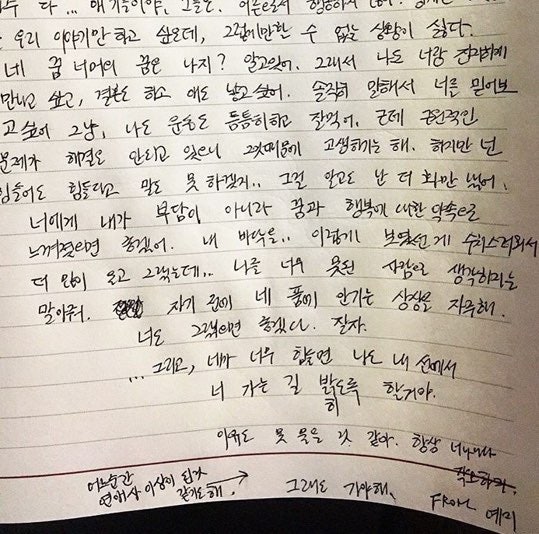 수 다... 얘기들이야. 그들은. 어른으로서 행동하지
우리 이야기만 하고 싶은데, 그럴 수 없는 상황이 싫다.
네 꿈 너머의 꿈은 나지? 알고있어. 그래서 나도 너랑 진지하게
만나고 싶고, 결혼도 하고 애도 낳고 싶어. 솔직히 말해서 너를 믿어보
고싶어 그냥, 나도 운동도 틈틈히하고 잘먹어. 근데 근원적인
문제가 해결은 안되고 있으니 그것때문에 고생하기는 해. 하지만 넌
힘들어도 힘들다고 말도 못 하겠지.. 그걸 알고도 난 더 화만 냈어.
너에게 내가 부담이 아니라 꿈과 행복에 대한 약속으로
느껴졌으면 좋겠어. 내 바닥을.. 이렇게 보였던 게 수치스러워서
더 많이 울고 그랬는데... 나를 너무 못된 사람으로 생각하지는
말아줘. 자기 전에 네 품에 안기는 상상을 자주해.
너도 그랬으면 좋겠다. 잘자.
...그리고, 네가 너무 힘들면 나도 내 선에서
너 가는 길 밝도록 할거야.
히
이유도 못 물을 것 같아. 항상 너보다
어느순간 연애사 이상이 된거 같기도해. → 그래도 기야해.
FROM 예지